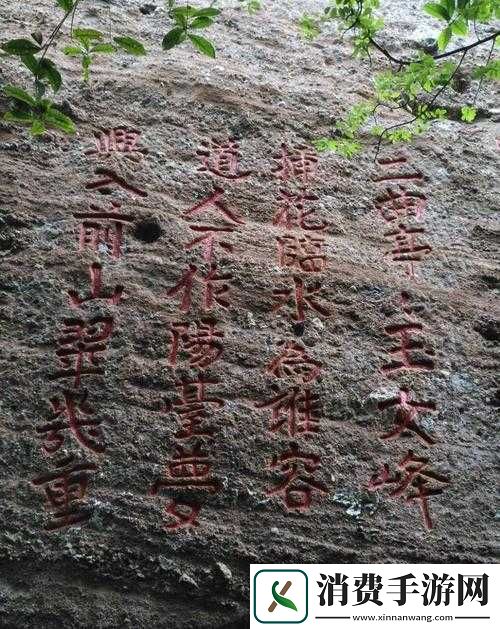 二曲亭〻玉女峰
插花臨水為誰容
道人不作陽臺夢
興入前山翠幾重
消费手游网
www.xinnanwang.com